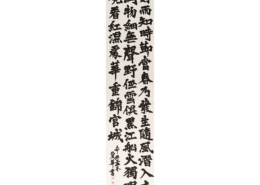 雨知時節當春乃發生隨風潛入
物細無聲野徑雲俱黑江船火獨明
看紅濕處華重錦官城